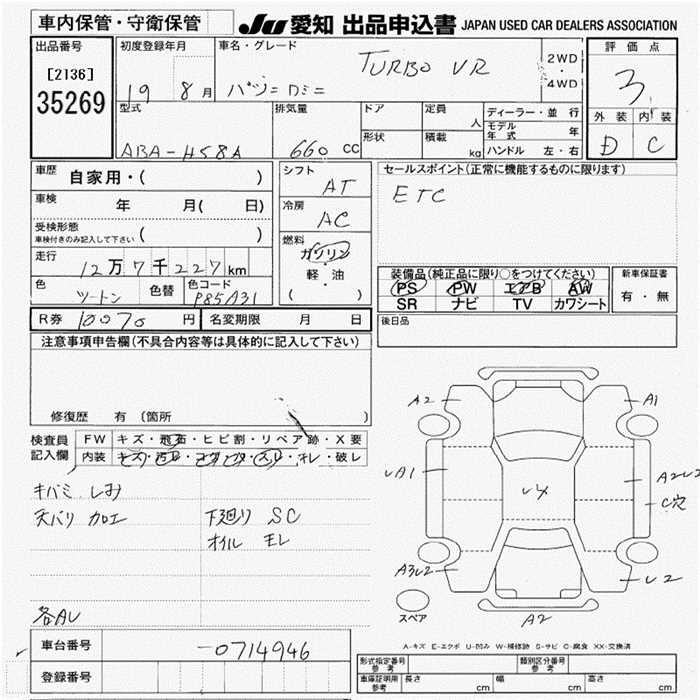 車内保管・守衛保管
JU 愛知 出品申込書 JAPAN USED CAR DEALERS ASSOCIATION
出品番号
[2136]
35269
初度登録年月
19 8 月
車名・グレード
TURBO VR
パジェロミニ
2WD
・
4WD
評価点
3
外装 内装
D C
型式
ABA-H58A
排気量
660 cc
ドア
形状
定員
人
積載
kg
ディーラー・並行
モデル年式 年
ハンドル 左・右
車歴 自家用・( )
車検 年 月( 日)
受検形態
車検付きのみ記入して下さい ( )
走行
12万7千227km
色
ツートン
色替
色コード
P85A31
シフト
AT
冷房
AC
燃料
ガソリン
・
軽・油
( )
セールスポイント(正常に機能するものに限ります)
ETC
装備品(純正品に限り○をつけてください)
PS PW エアB AW
SR ナビ TV カワシート
新車保証書
有・無
R券 10070 円 名変期限 月 日
後日品
注意事項申告欄(不具合内容等は具体的に記入して下さい)
修復歴 有 (箇所 )
検査員
記入欄
FW キズ・飛石・ヒビ割・リペア跡・X要
内装 キズ・汚レ・コゲ・ ・スレ・ ・破レ
キバミ しみ
天バリ カロエ
下廻り SC
オイル モレ
各AU
A2
A1
A1
A2
C穴
A3
2
A2
スペア
A-キズ E-エクボ U-凹み W-補修跡 S-サビ C-腐食 XX-交換済
車台番号
-0714946
登録番号
型式指定番号
参考
類別区分番号
参考
車庫証明用
参考
長さ cm 幅 cm 高さ cm